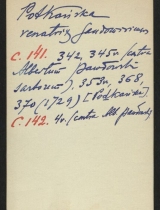 Potkańska
venatrix Sandomiriensis
C. 141. 342, 345v (contra
Albertum Pawłowski
sartorem), 353v, 368,
370 (1729) [Potkańska]
C. 142. 4v (contra Alb. Pawłowski)